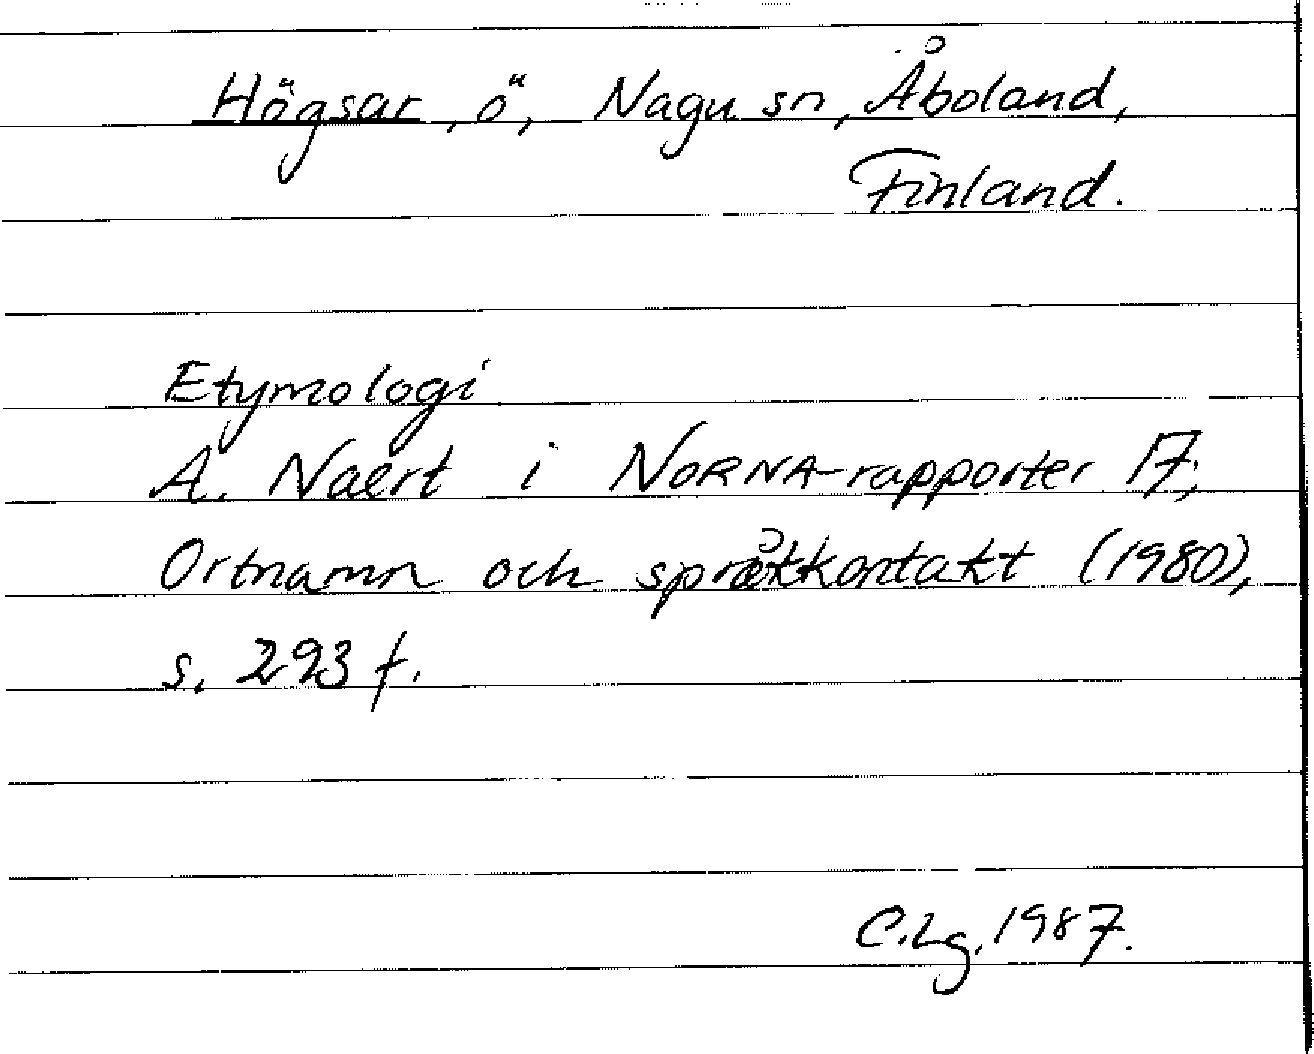 Högsar, ö, Nagu sn, Åboland,
Finland.
Etymologi
A. Naert i NORNA-rapporter 17;
Ortnamn och språkkontakt (1980),
s. 293 f.
C.Lg. 1987.